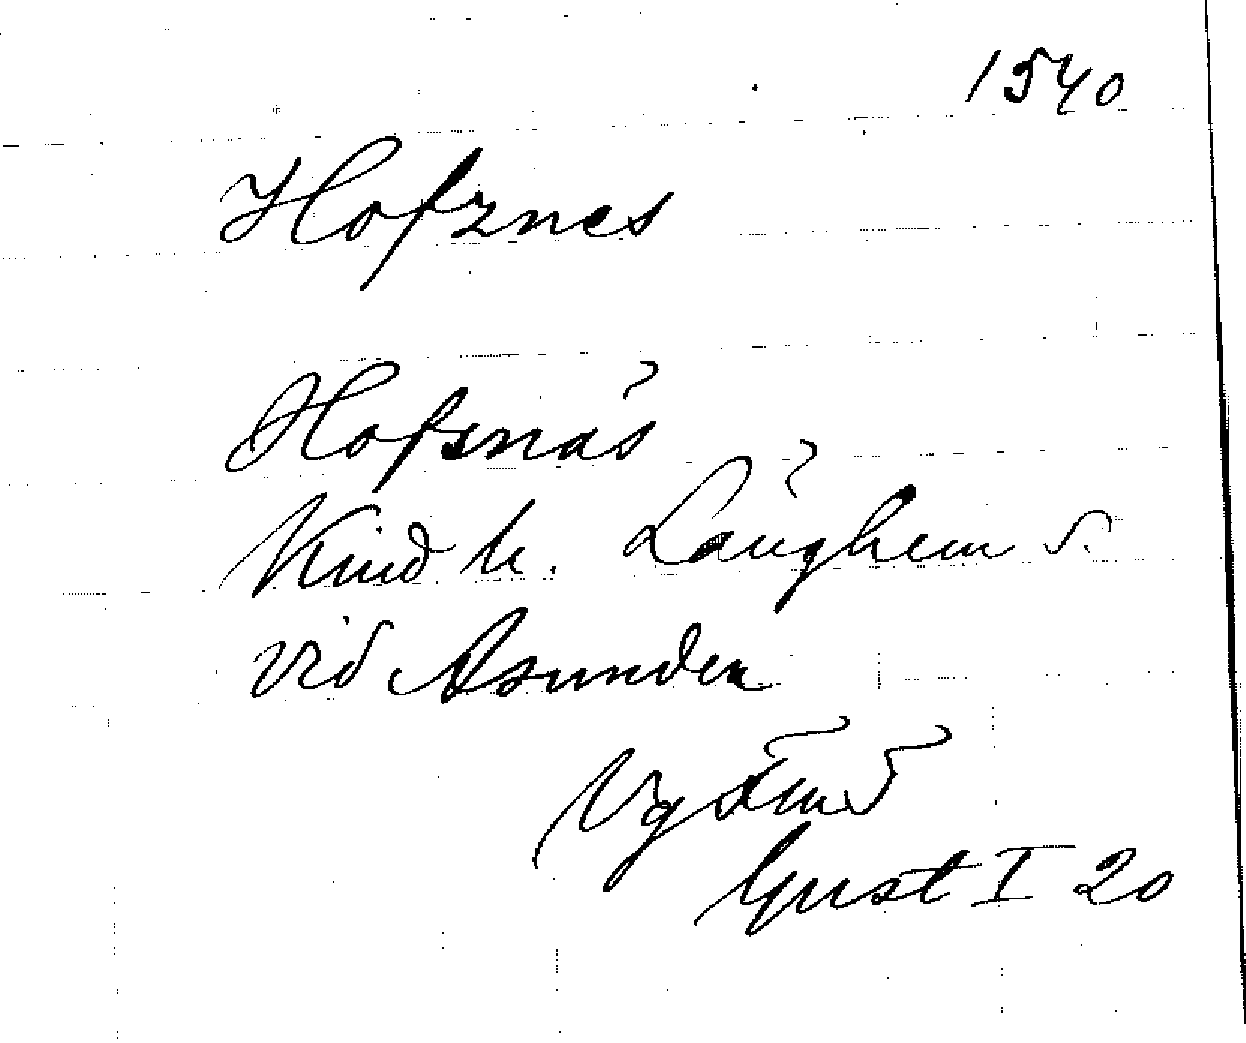 1540
Hofznes
Hofsnäs
Kind h. Länghem s.
vid Åsunden
Vg
Gust I 20